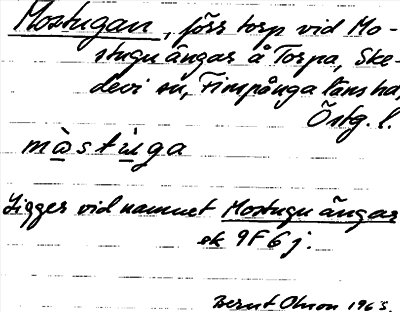 Mostugan, förr torp vid Mo-
stuguängar å Torpa, Ske-
devi sn, Finspånga läns hd,
Östg. l.
mὼstùga
Ligger vid namnet Mostuguängar
ek 9F6j.
Bernt Olsson 1963.